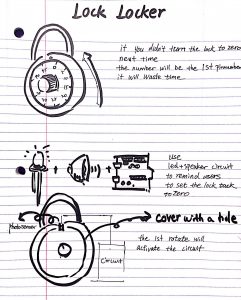 Lock Locker
if you didn't turn the lock to zero
next time
the number will be the 1st number
it will waste time
use
led + speaker circuit
to remind users
to set the lock back
to zero
photosensor
cover with a hole
the 1st rotate will
activate the circuit
circuit